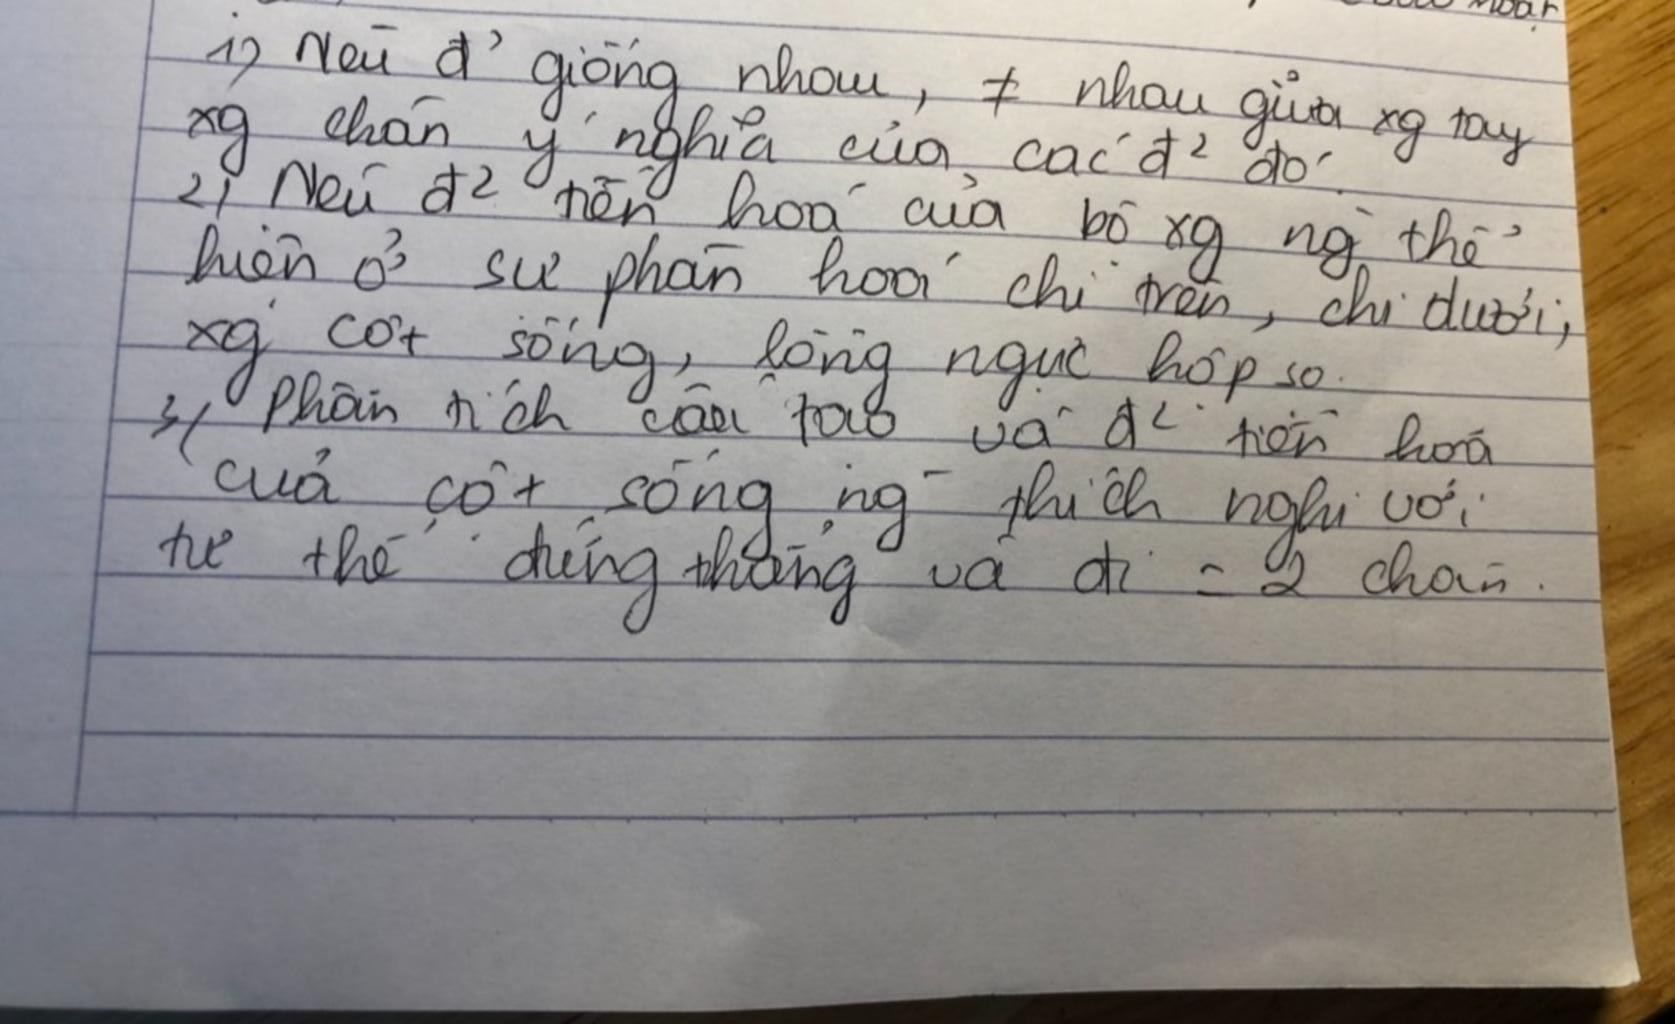 1) Nêu đ² giống nhau, ≠ nhau giữa xg tay
xg chân ý nghĩa của các đ² đó.
2, Nêu đ² tiến hoá của bộ xg ng thể
hiện ở sự phân hoá chi trên, chi dưới,
xg cột sống, lồng ngực hộp sọ.
3, Phân tích cấu tạo và đ² tiến hoá
của cột sống ng thích nghi với
tư thế đứng thẳng và đi = 2 chân.